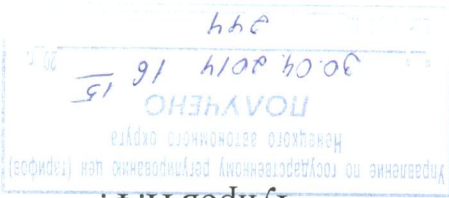 Управление по государственному регулированию цен (тарифов)
Ненецкого автономного округа
ПОЛУЧЕНО
30.04.2014 16 15
20 г.